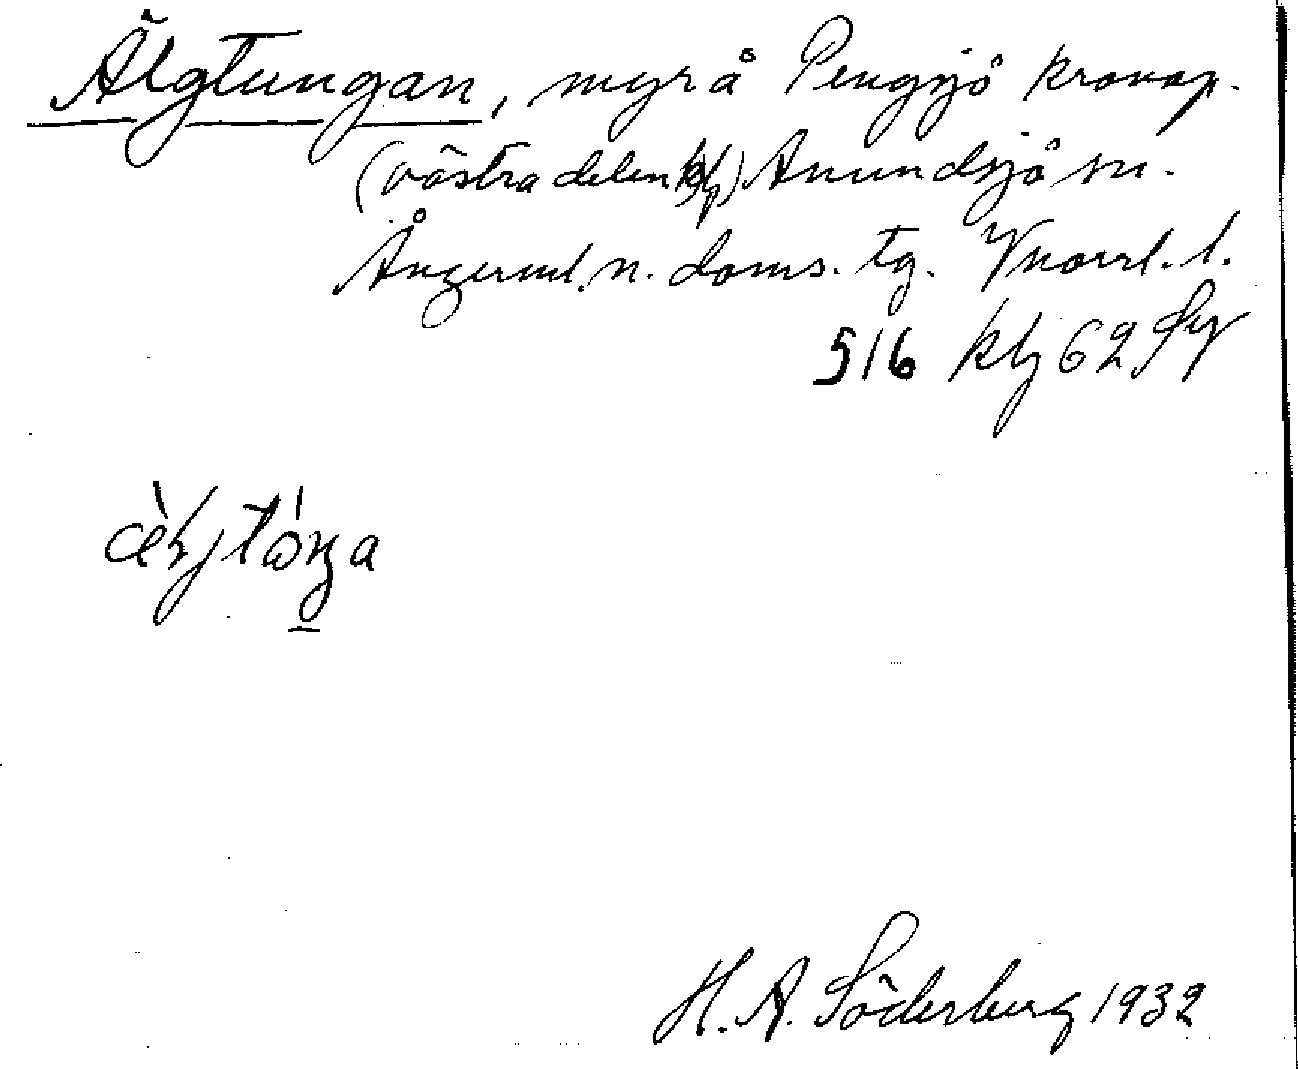 Älgtungan, myr å Pengsjö kronop.
(västra delen) Anundsjö sn.
Ångerml. n. doms. tg. Vnorrl. l.
516 kbj 62 Sy
H. A. Söderberg 1932